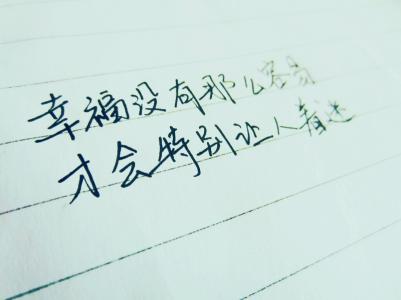 幸福没有那么容易
才会特别让人着迷